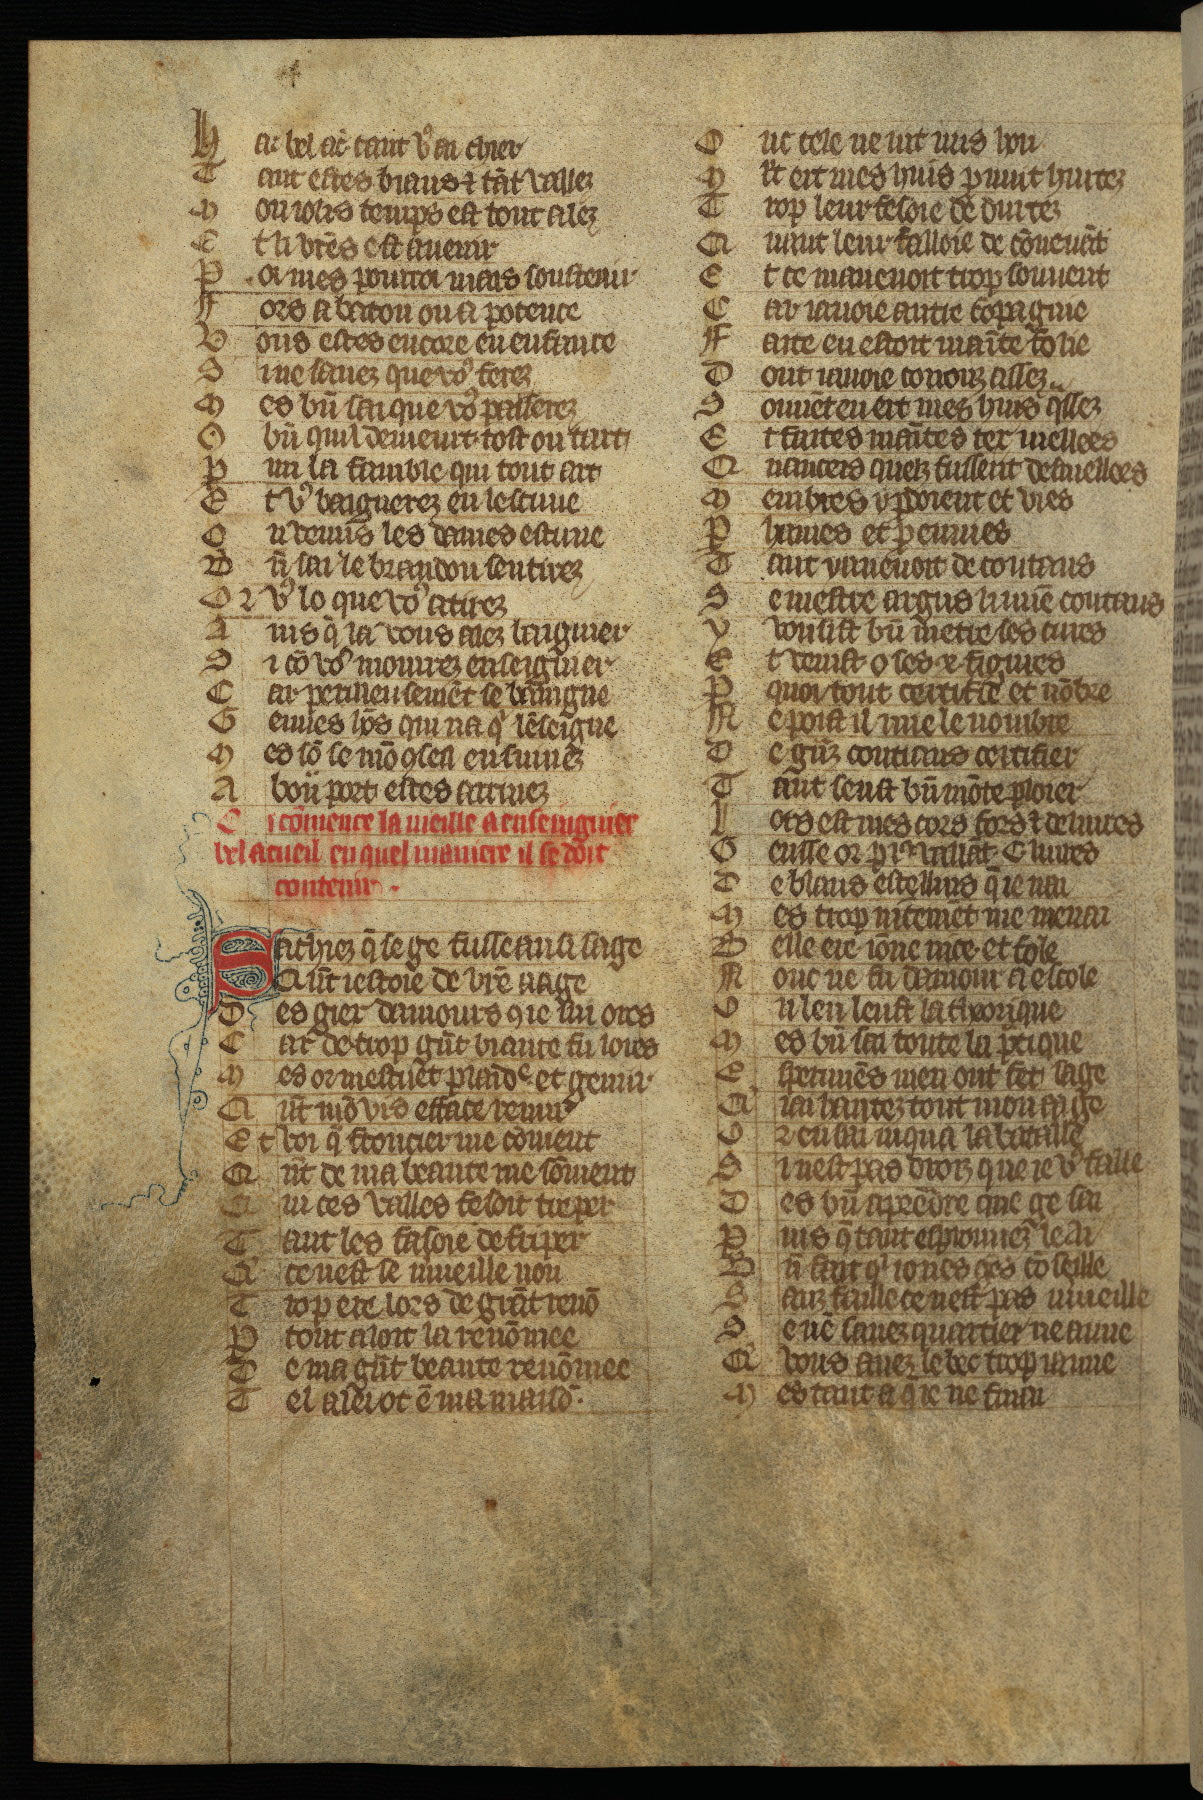 H ar bel ac̄ tant vꝰ ai chier
T ant estes biaus ⁊ tāt vallez
M ou iolis temps est tout alez
E t li vr̄es est auenir
P oi mes pourrai mais soustenir
F ors a baton ou a potence
V ous estes encore en enfance
S i ne sauez que voꝰ ferez
M es bn̄ sai que voꝰ passerez
O bn̄ quil demeurt tost ou tart
P mi la flamble qui tout art
E t vꝰ baignerez en lestuue
O u venus les dames estuue
B n̄ sai le brandon sentirez
O r vꝰ lo que voꝰ atirez
A ins q̄ la vous alez baignier
S i cō voꝰ mourrez enseignier
C ar perilleusemēt se baingne
G ennes hōs qui na qͥ lēseigne
M es sō se mō ꝯseil ensuiuez
A bon port estes arriuez
C i cōmence la uieille a enseingnier
bel acueil en quel maniere il se doit
contenir
S achiez q̄ se ge fusse ausi sage
Q ūt iestoie de vr̄e aage
D es gieᵉ damours ꝯ ie sui ores
C ar de trop gūt biaute fu lores
M es or mestuēt plaīdᵉ et gemir
Q ūt mō vis efface remir
E t voi q̄ froncier me cōment
Q ūt de ma beaute me sōment
Q ui ces valles fesoit treper
T ant les fasoie defriper
Q ce nest se mueille non
T rop ere lors de grāt renō
P tout aloit la renōmee
D e ma gūt beaute renōmee
T el aleᵉ ot ē ma maisō
O nc tele ne uit nus hon
M lt ert mes huis p nuit hurtez
T rop leur fesoie de durtez
Q uant leur falloie de cōuenāt
E t ce mauenoit trop souuent
C ar iauoie autre cōpagnie
F aite en estoit mainte folie
D ont iauoie corrouz assez
S ouuēt en ert mes huis qͣssez
E t faites maītes tex mellees
Q uancers quelz fussent desmellees
M embres y pdoient et vies
P haines et p enuies
T ant y auenoit de contans
S e mestre argus li biē contans
Y vousist bn̄ metre ses cures
E t venist o ses .x. figures
P quoi tout certifie et nōbre
N e poist il mie le nombre
D e gūz contans certifier
T ant seust bn̄ mōteploier
L ors est mes cors fors ⁊ deliures
G eusse or pͥ vaillāt .C. liures
D e blans estellins q̄ ie nai
M es trop nicemēt me menai
B elle ere ioñe nice et fole
N onc ne fu damour a escole
O u len leust la theorique
M es bn̄ sai toute la p̄tique
E spimēs men ont fet sage
Q iai hantez tout mon aage
O r en sai iusqua la bataille
S i nest pas droiz que ie vꝰ faille
D es bn̄ apēdre que ge sai
P uis q̄ tant esprouuez le ai
B n̄ fait qͥ iones gēs cōseille
S anz faille ce nest pas mueille
S e nē sauez quartier ne aune
Q vous auez le bec trop iaune
M es tant a q ie ne finai